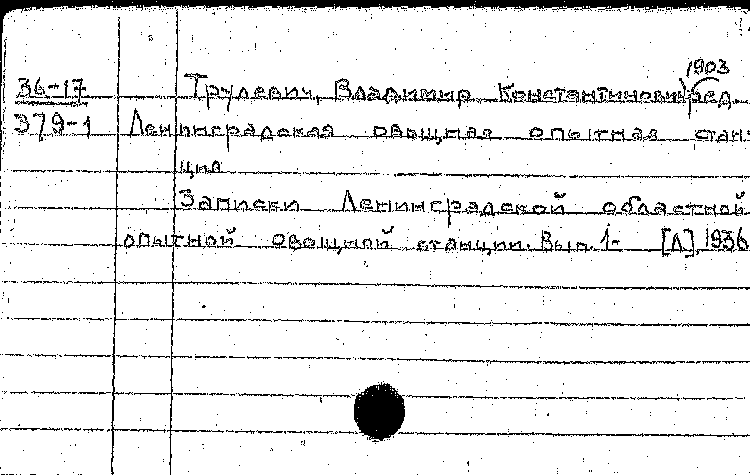 1903
36-17 Трулевич, Владимир Константинович, ред.
379-1 Ленинградская овощная опытная стан-
ция
Записки Ленинградской областной
опытной овощной станции. Вып. 1- [Л], 1936